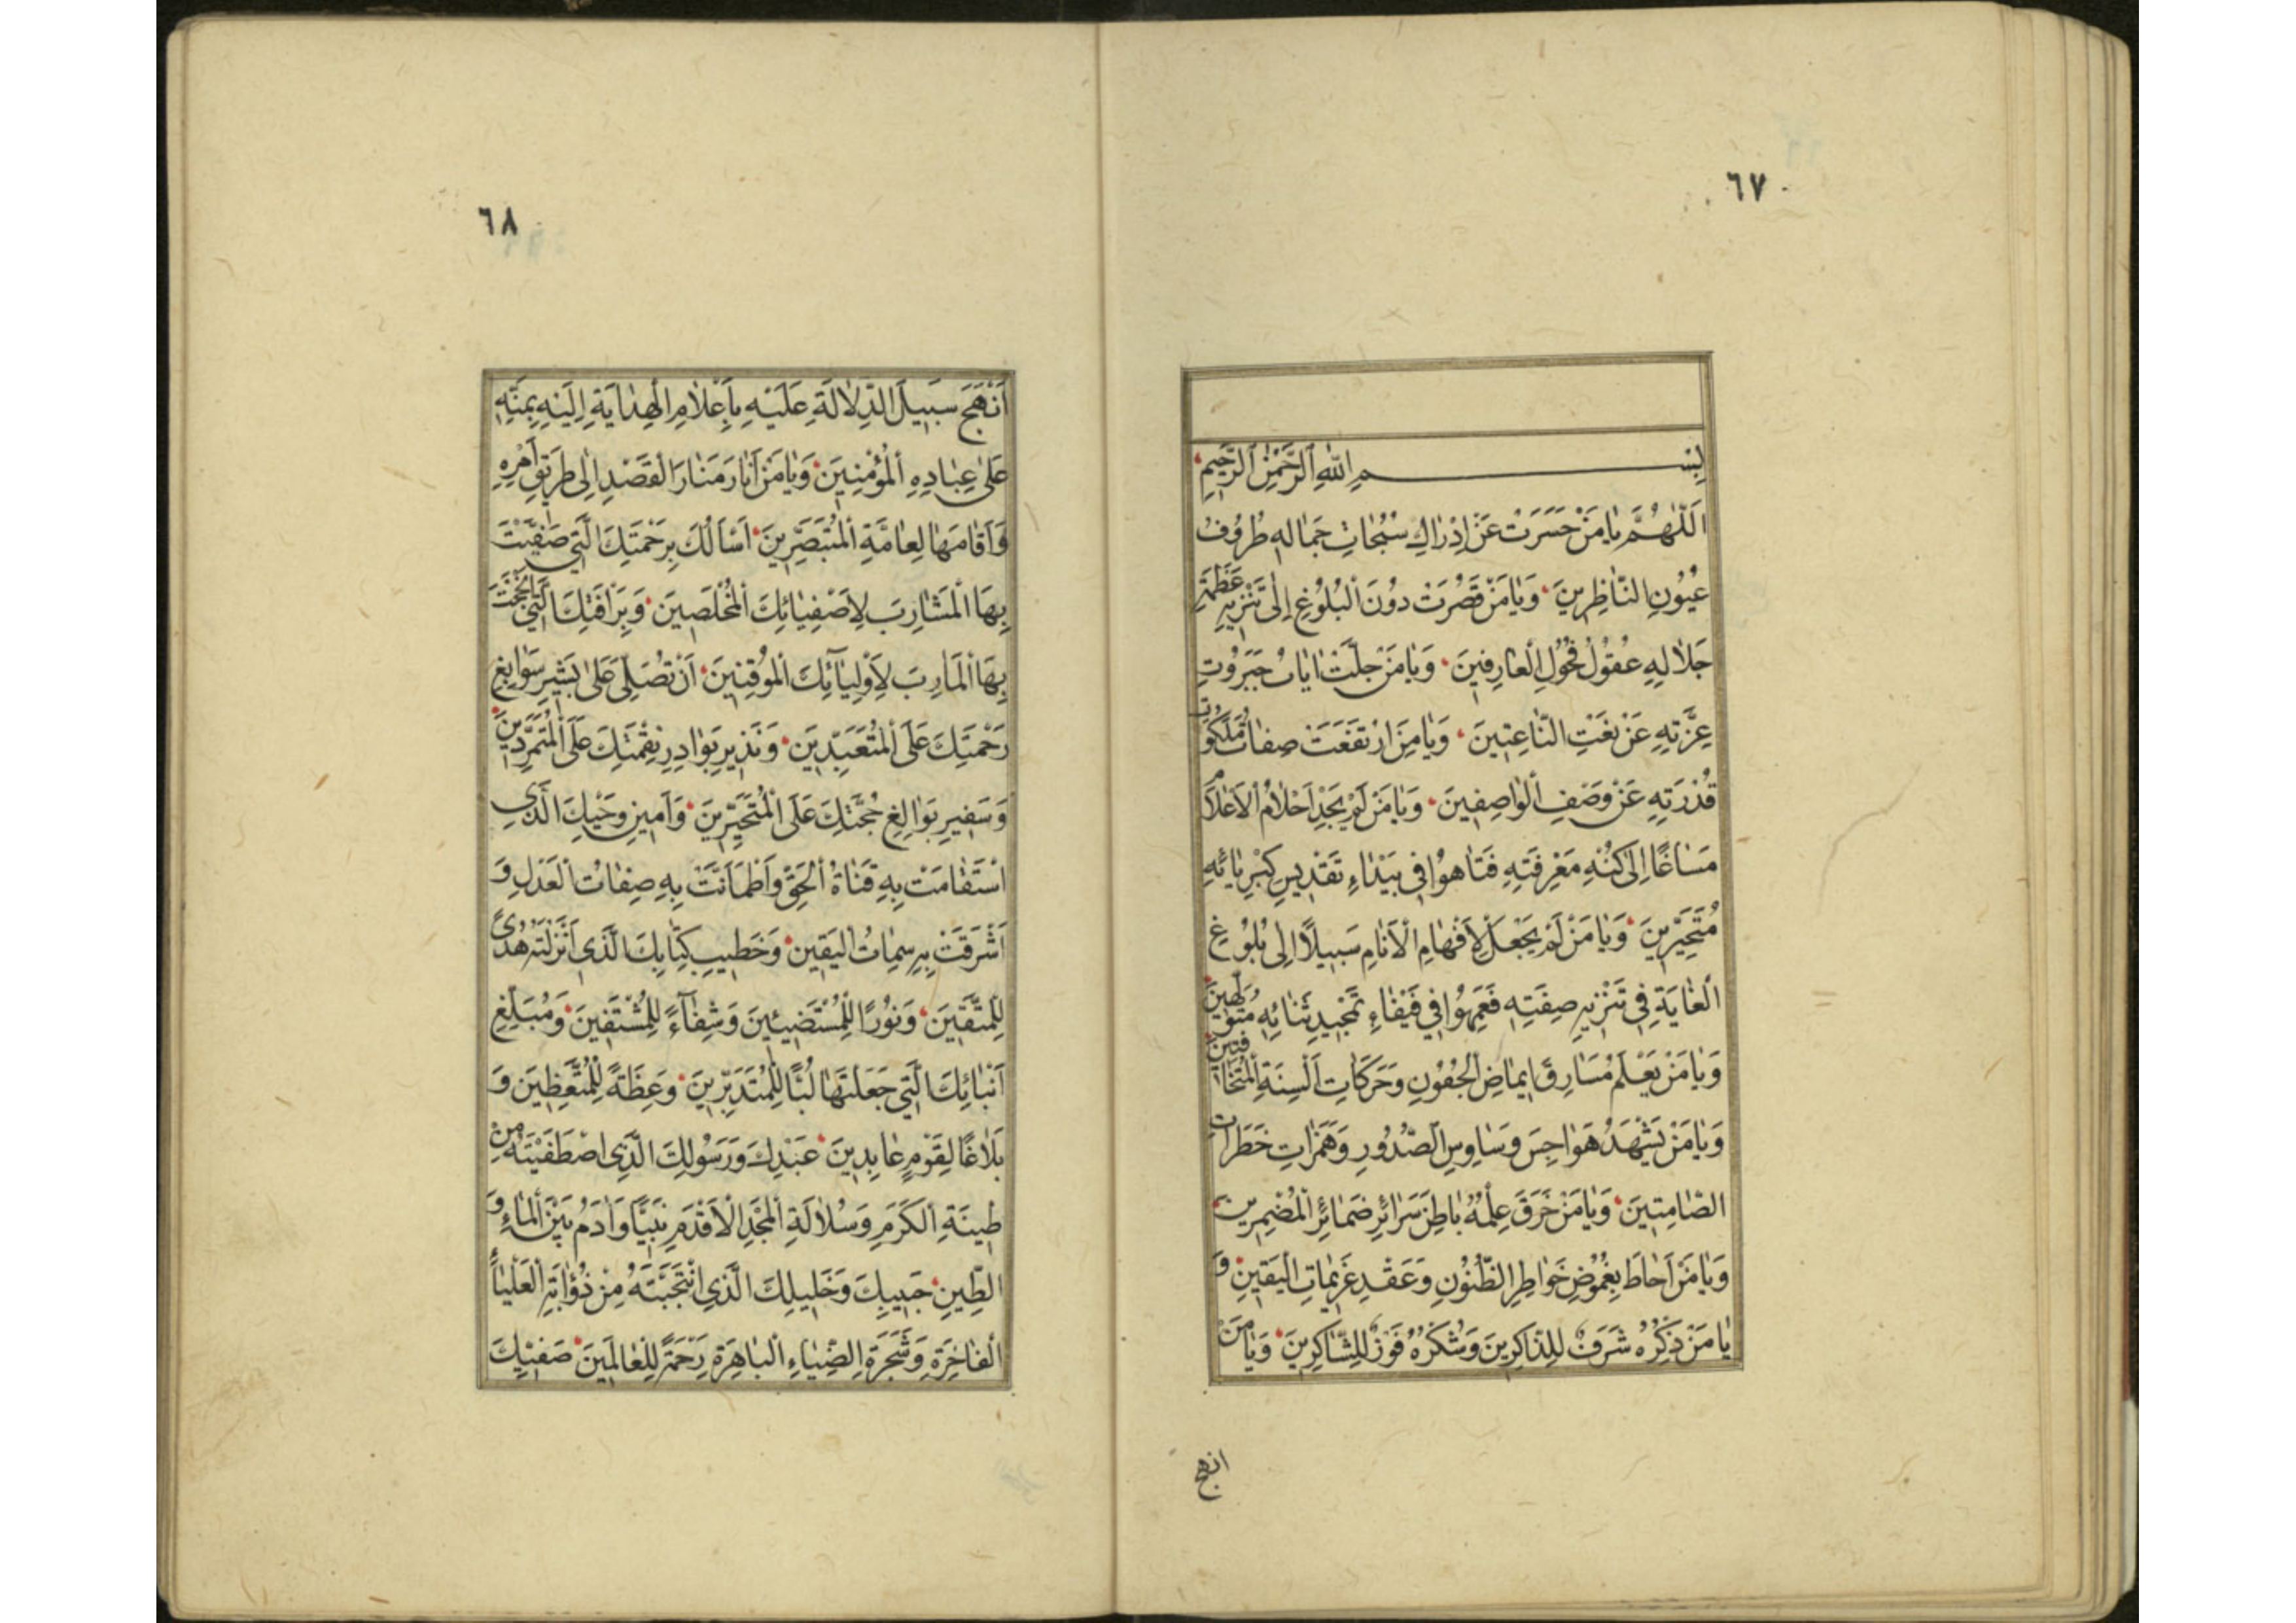 ٦٧
بِسْمِ اللهِ الرَّحْمٰنِ الرَّحِيمِ
اَللّٰهُمَّ يَا مَنْ حَسَرَتْ عَنْ اِدْرَاكِ سُبُحَاتِ جَمَالِهِ طُرُوفُ
عُيُونِ النَّاظِرِينَ وَيَا مَنْ قَصُرَتْ دُونَ الْبُلُوغِ اِلَى تَنْزِيهِ عَظَمَةِ
جَلَالِهِ عُقُولُ فُحُولِ الْعَارِفِينَ وَيَا مَنْ جَلَّتْ اٰيَاتُ جَبَرُوتِ
عِزَّتِهِ عَنْ نَعْتِ النَّاعِتِينَ وَيَا مَنِ ارْتَفَعَتْ صِفَاتُ مَلَكُوتِ
قُدْرَتِهِ عَنْ وَصْفِ الْوَاصِفِينَ وَيَا مَنْ لَمْ يَجِدْ اَحْلَامُ الْاَعْلَامِ
مَسَاغًا اِلَى كُنْهِ مَعْرِفَتِهِ فَتَاهُوا فِي بَيْدَاءِ تَقْدِيسِ كِبْرِيَائِهِ
مُتَحَيِّرِينَ وَيَا مَنْ لَمْ يَجْعَلْ لِاَفْهَامِ الْاَنَامِ سَبِيلًا اِلَى بُلُوغِ
الْغَايَةِ فِي تَنْزِيهِ صِفَتِهِ فَعَمِهُوا فِي فَيْفَاءِ تَمْجِيدِ ثَنَائِهِ مُتَوَلِّهِينَ
وَيَا مَنْ يَعْلَمُ مَسَارِقَ اِيمَاضِ الْجُفُونِ وَحَرَكَاتِ اَلْسِنَةِ الْمُتَخَافِتِينَ
وَيَا مَنْ يَشْهَدُ هَوَاجِسَ وَسَاوِسِ الصُّدُورِ وَهَمَزَاتِ خَطَرَاتِ
الصَّامِتِينَ وَيَا مَنْ خَرَقَ عِلْمُهُ بَاطِنَ سَرَائِرِ ضَمَائِرِ الْمُضْمِرِينَ
وَيَا مَنْ اَحَاطَ بِغُمُوضِ خَوَاطِرِ الظُّنُونِ وَعَقْدِ عَزِيمَاتِ الْيَقِينِ وَ
يَا مَنْ ذِكْرُهُ شَرَفٌ لِلذَّاكِرِينَ وَشُكْرُهُ فَوْزٌ لِلشَّاكِرِينَ وَيَا مَنْ
انهج
٦٨
اَنْهَجَ سَبِيلَ الدِّلَالَةِ عَلَيْهِ بِاَعْلَامِ الْهِدَايَةِ اِلَيْهِ بِمَنِّهِ
عَلَى عِبَادِهِ الْمُؤْمِنِينَ وَيَا مَنْ اَنَارَ مَنَارَ الْقَصْدِ اِلَى طَرِيقِ اَمْرِهِ
وَاَقَامَهَا لِعَامَّةِ الْمُتَبَصِّرِينَ اَسْاَلُكَ بِرَحْمَتِكَ الَّتِي صَفَّيْتَ
بِهَا الْمَشَارِبَ لِاَصْفِيَائِكَ الْمُخْلَصِينَ وَبِرَاْفَتِكَ الَّتِي اَنْجَحْتَ
بِهَا الْمَاٰرِبَ لِاَوْلِيَآئِكَ الْمُوقِنِينَ اَنْ تُصَلِّيَ عَلَى بَشِيرِ سَوَابِغِ
رَحْمَتِكَ عَلَى الْمُتَعَبِّدِينَ وَنَذِيرِ بَوَادِرِ نِقْمَتِكَ عَلَى الْمُتَمَرِّدِينَ
وَسَفِيرِ بَوَالِغِ حُجَّتِكَ عَلَى الْمُتَحَيِّرِينَ وَاَمِينِ وَحْيِكَ الَّذِي
اسْتَقَامَتْ بِهِ قَنَاةُ الْحَقِّ وَاطْمَاَنَّتْ بِهِ صِفَاتُ الْعَدْلِ وَ
اَشْرَقَتْ بِهِ سِمَاتُ الْيَقِينِ وَخَطِيبِ كِتَابِكَ الَّذِي اَنْزَلْتَهُ هُدًى
لِلْمُتَّقِينَ وَنُورًا لِلْمُسْتَضِيئِينَ وَشِفَآءً لِلْمُشْتَفِينَ وَمُبَلِّغِ
اَنْبَائِكَ الَّتِي جَعَلْتَهَا لُبًّا لِلْمُتَدَبِّرِينَ وَعِظَةً لِلْمُتَّعِظِينَ وَ
بَلَاغًا لِقَوْمٍ عَابِدِينَ عَبْدِكَ وَرَسُولِكَ الَّذِي اصْطَفَيْتَهُ مِنْ
طِينَةِ الْكَرَمِ وَسُلَالَةِ الْمَجْدِ الْاَقْدَمِ نَبِيًّا وَاٰدَمُ بَيْنَ الْمَاءِ وَ
الطِّينِ حَبِيبِكَ وَخَلِيلِكَ الَّذِي انْتَجَبْتَهُ مِنْ ذُؤَابَةِ الْعَلْيَاءِ
الْفَاخِرَةِ وَشَجَرَةِ الضِّيَاءِ الْبَاهِرَةِ رَحْمَةً لِلْعَالَمِينَ صَفِيِّكَ